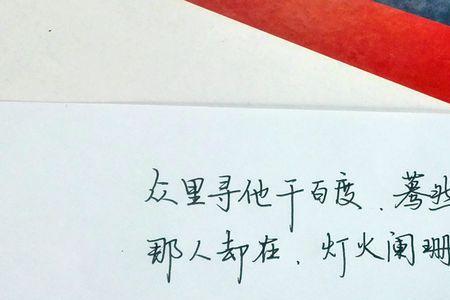 众里寻他千百度.蓦然
那人却在.灯火阑珊